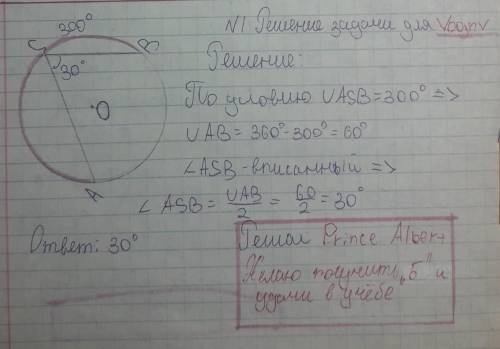 N1 Решение задачи для
Решение:
300°
С
В
30°
О
А
По условию ∪ASB=300° =>
∪AB= 360°-300°=60°
∠ASB-вписанный =>
∠ASB= ∪AB/2 = 60/2 = 30°
Ответ: 30°
Решал Prince Albert
Желаю получить „5" и
удачи в учёбе